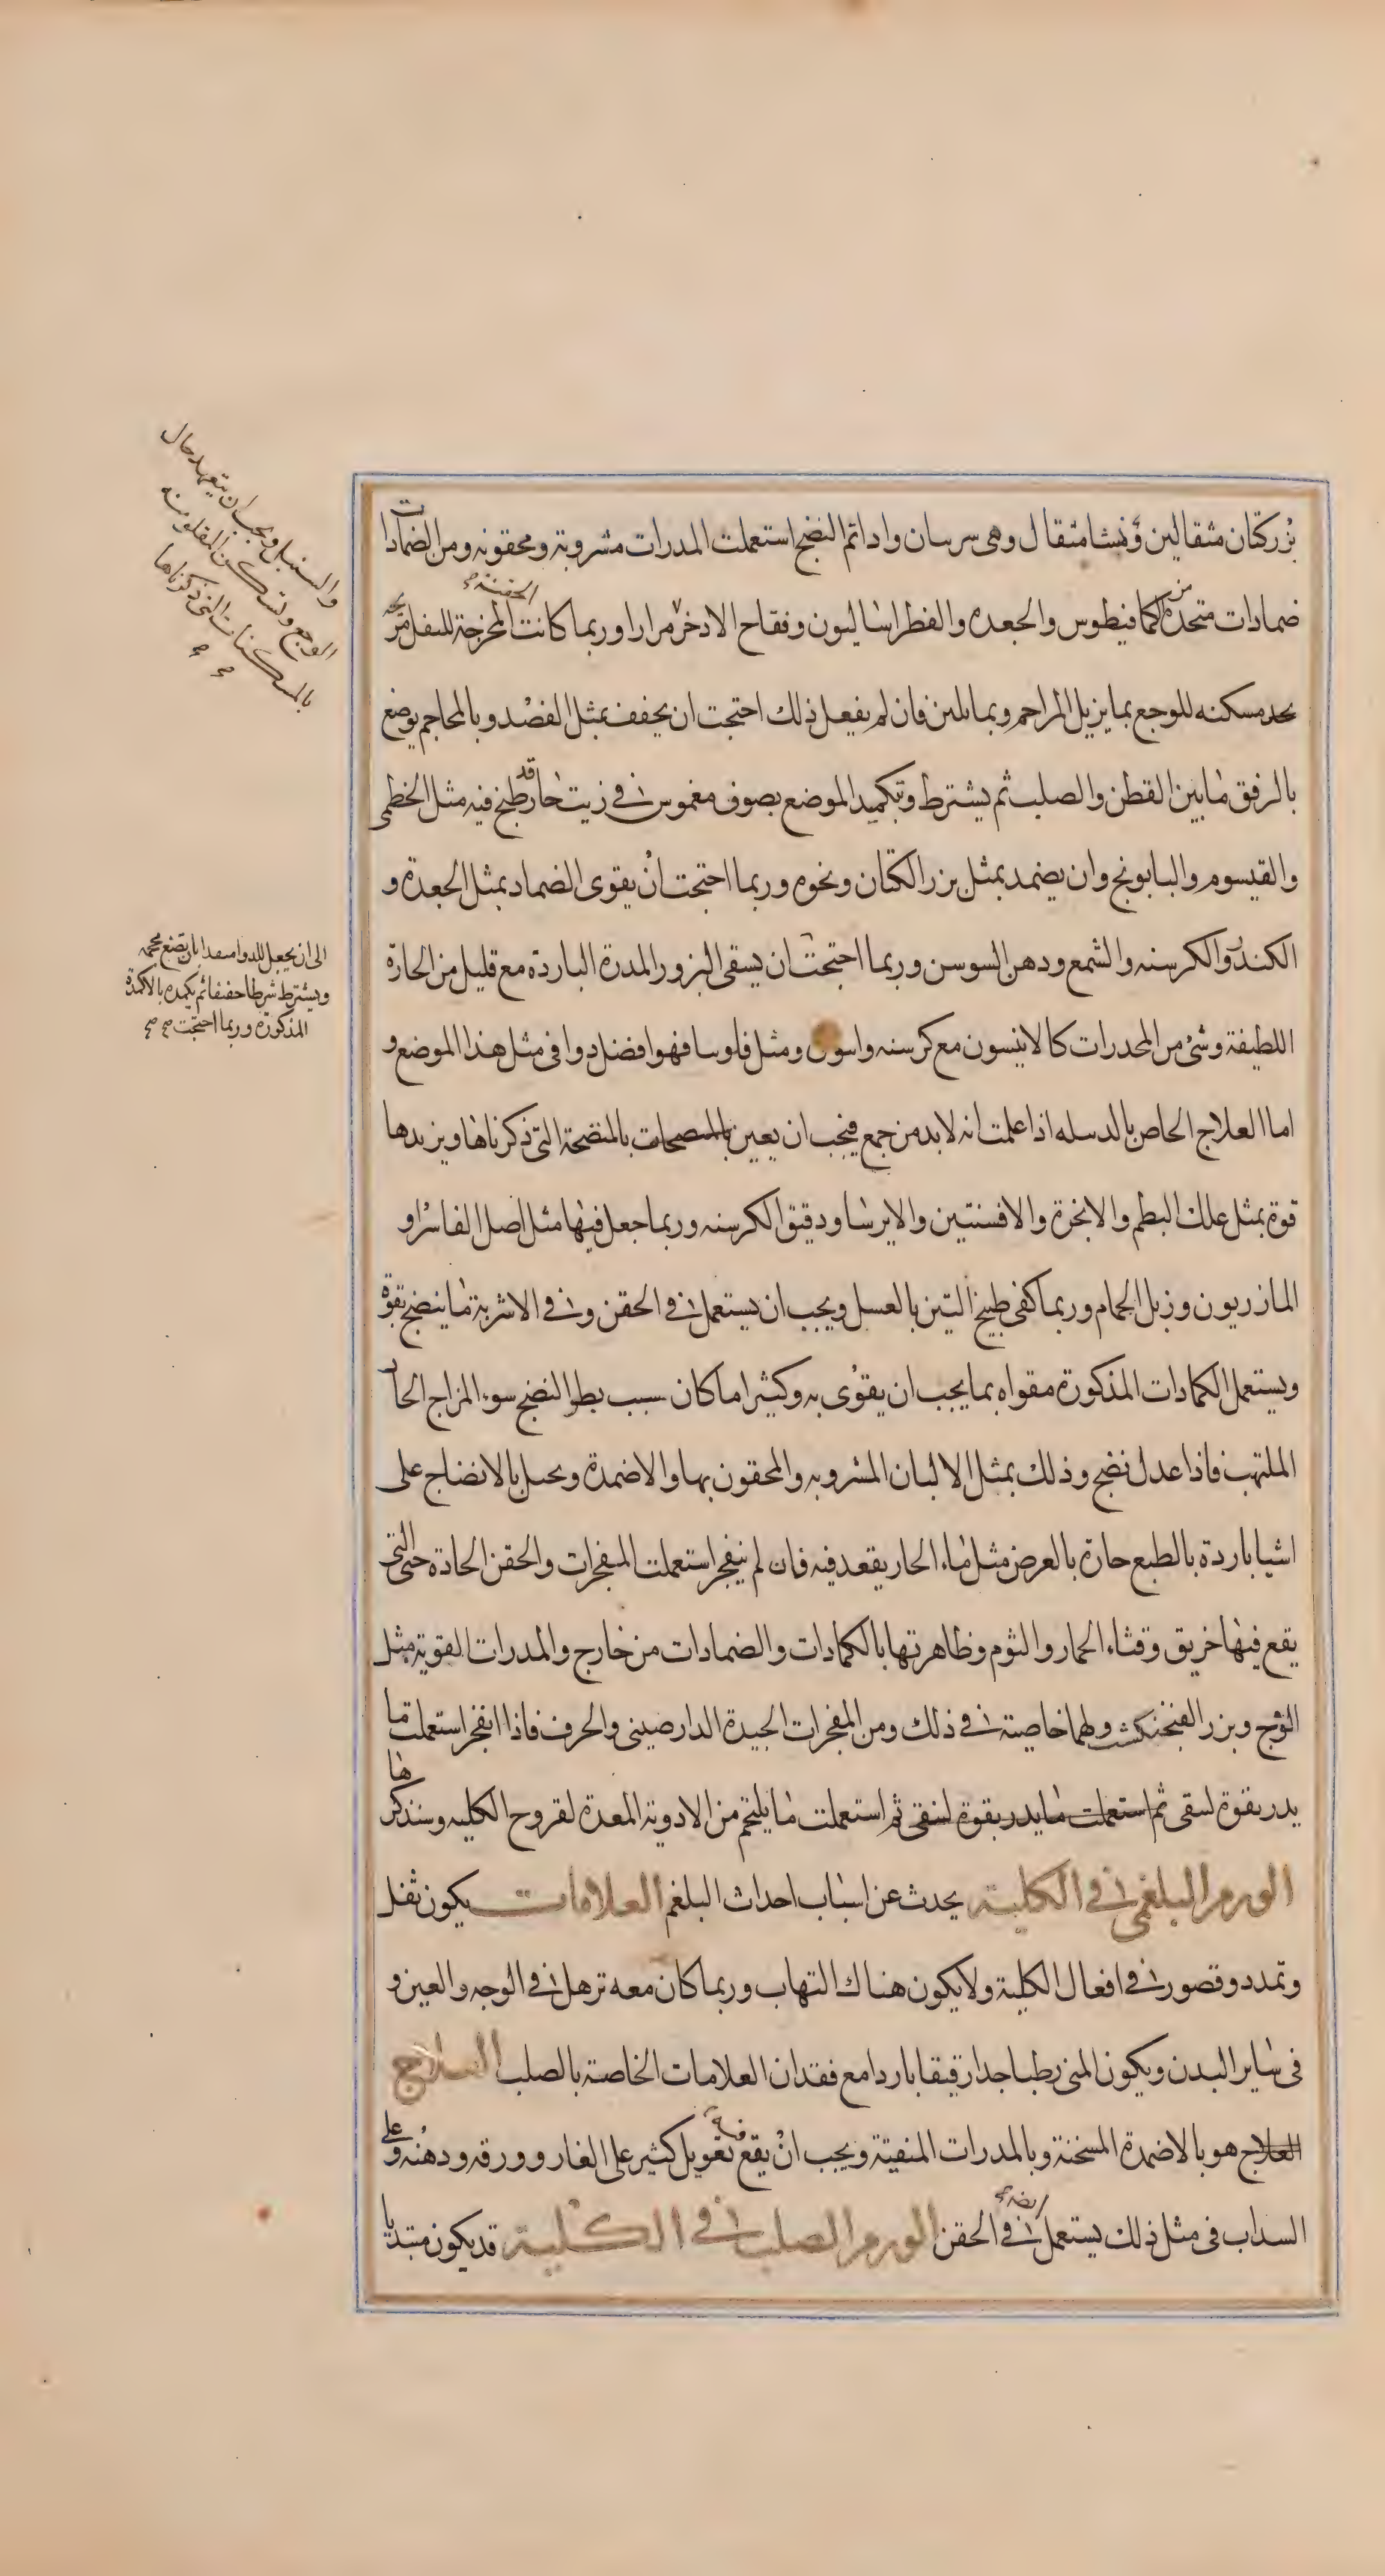 بزركتان مثقالين ونشا مثقال وهى سرسان واداتم النضج استعملت المدرات مشروبة ومحقونه ومن الضمادات
ضمادات متخذة من الكمافيطوس والجعده والفطراساليون وفقاح الادخر مرارا وربما كانت الحقنة المخرجة للثفل مرخيه
بحد مسكنه للوجع بما يزيل المزاحم وبما يلين فان لم يفعل ذلك احتجت ان يخفف بمثل الفصد وبالمحاجم يوضع
بالرفق مابين القطن والصلب ثم يشترط وبتكميد الموضع بصوف مغموس فى زيت حار قد طبخ فيه مثل الخطمى
والقيسوم والبابونج وان يضمد بمثل بزر الكتان ونحوه وربما احتجت ان يقوى الضماد بمثل الجعدة و
الكندر والكرسنه والشمع ودهن السوسن وربما احتجت ان يسقى البزور المدرة الباردة مع قليل من الحارة
اللطيفة وشئ من المخدرات كالانيسون مع كرسنه واسون ومثل فلوسا فهو افضل دوا فى مثل هذا الموضع و
اما العلاج الخاص بالدبيله اذا علمت انه لابد من جمع فيجب ان يعين بالمنضجات بالمنضجة التى ذكرناها ويزيدها
قوة بمثل علك البطم والانجرة والافسنتين والايرسا ودقيق الكرسنه وربما جعل فيها مثل اصل الفاشرا و
المازريون وزبل الحمام وربما كفى طبيخ التين بالعسل ويجب ان يستعمل فى الحقن وفى الاشربة ماينضج بقوة
ويستعمل الكمادات المذكورة مقواه بما يجب ان يقوى به وكثيرا ماكان سبب بطو النضج سوء المزاج الحار
الملتهب فاذا عدل نضج وذلك بمثل الالبان المشروبه والمحقون بها والاضمدة وبحيل بالانضاج على
اشيا باردة بالطبع حارة بالعرض مثل ماء الحار يقعد فيه فان لم ينفجر استعملت المفجرات والحقن الحادة حتى التى
يقع فيها خربق وقثاء الحمار والثوم وظاهرتها بالكمادات والضمادات من خارج والمدرات القوية مثل
الوج وبزر الفنجنكشت ولهما خاصية فى ذلك ومن المفجرات الجيدة الدارصينى والحرف فاذا انفجر استعملت ما
يدر بقوة لسقى ثم استعملت مايدر بقوة لسقى ثم استعملت مايلحم من الادوية المعدة لقروح الكليه وسنذكرها
الورم البلغمى فى الكلية يحدث عن اسباب احداث البلغم العلامات يكون ثقل
وتمدد وقصور فى افعال الكلية ولايكون هناك التهاب وربما كان معه ترهل فى الوجه والعين و
فى ساير البدن ويكون المنى رطبا جدا رقيقا باردا مع فقدان العلامات الخاصة بالصلب العلاج
العلاج هو بالاضمدة المسخنة وبالمدرات المنقية ويجب ان يقع فيه تعويل كثير على الغار وورقه ودهنه وعلى
السداب فى مثل ذلك يستعمل ايضه فى الحقن الورم الصلب فى الكلية قد يكون مبتديا
والسنبل ويجب ان يتعهد حال
الوجع وتسكن المقلوبنه
بالمسكنات التى ذكرناها
الى ان يجعل للدوا منفدا بان تضع محجمه
ويشترط شرطا خفيفا ثم يكمده بالاكمدة
المذكورة وربما احتجت صح صح